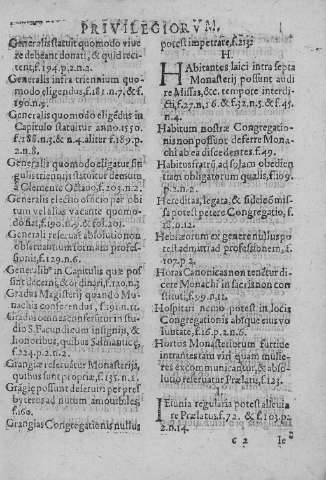 PRIVILEGIORVM.
Generalis statuit quomodo vive
re debeant donati, & quid reci
tent, f.194.p.2.n.2.
Generalis infra triennium quo-
modo eligendus, f.181.n.7, & f.
190.n.9.
Generalis quomodo eligēdus in
Capitulo statuitur anno.1550.
f.188.n.3. & n.4. aliter f.189.p.
2.n.8.
Generalis quomodo eligatur sin
gulis trienniis statuitur densum
à Clemente Octauo, f.203.n.2.
Generalis electio officio per obi
tum vel alias vacante quomo-
do fiat, f.190.n.9. & fol.201.
Generali reseruat absolutio non
obseruantium formam profes-
sionis, f.129.n.6.
Generalib⁹ in Capitulis quæ pos
sint decerni, & ordinari, f.120.n.3
Gradus Magisterij quando Mo-
nachis conferendus, f.191.n.11.
Gradus omnes constituitur in stu
dio S. Facundi cum insignijs, &
honoribus, quibus Salmanticæ,
f.224.p.2.n.2.
Grangiæ reseruatur Monasterij,
quibus sunt propriæ, f.135.n.1.
Grāgię possunt deseruiri per pres
byteros ad nutum amouibiles,
f.160.
Grangias Congregationis nullus
potest impetrare, f.213.
H.
HAbitantes laici intra septa
Monasterij possunt audi
re Missas, &c. tempore interdi-
cti, f.27.n.16. & f.32.n.5. & f.45.
n.4.
Habitum nostræ Congregatio-
nis non possunt deferre Mona-
chi ab ea discedentes f.49.
Habitus fratrū ad solam obedien
tiam obligatorum qualis, f.109.
p.2.n.2.
Hereditas, legata, & fideicōmis-
sa potest petere Congregatio, f.
12.n.1.
Hebræorum ex genere nullus po
test admitti ad professionem, f.
107.p.2.
Horas Canonicas non tenētur di-
cere Monachi in sacris non con
stituti, f.99.n.12.
Hospitari nemo potest in locis
Congregationis absque eius vo
luntate, f.16.p.2.n.6.
Hortos Monasteriorum furtiue
intrantes tam viri quam mulie-
res excommunicātur, & abso-
lutio reseruatur Prælatis, f.123.
I.
IEiunia regularia potest alleuia
re Prælatus, f.72. & f.103.p.
2.n.14.
¢ 2 Ie